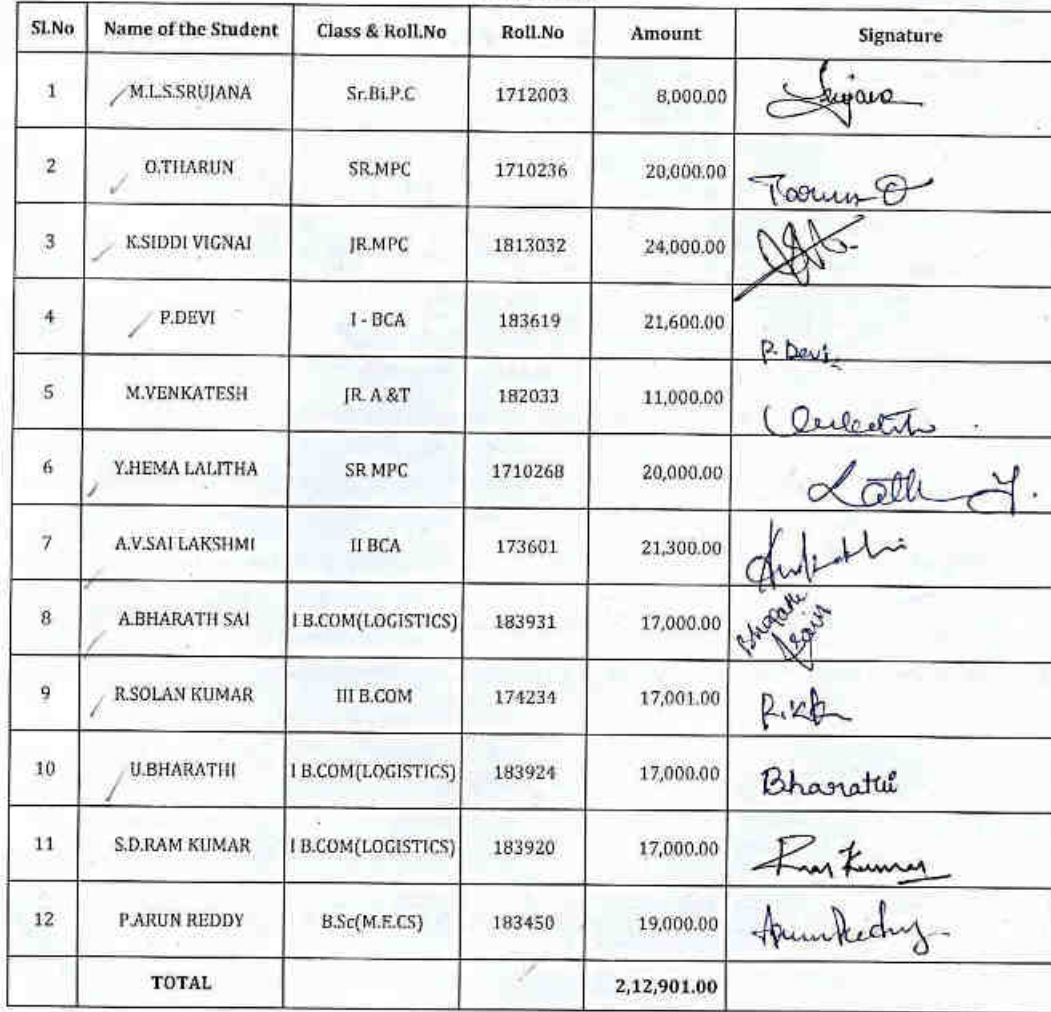 Sl.No Name of the Student Class & Roll.No Roll.No Amount Signature
1 M.L.S.SRUJANA Sr.Bi.P.C 1712003 8,000.00 Srujana
2 O.THARUN SR.MPC 1710236 20,000.00 Taarun O
3 K.SIDDI VIGNAI JR.MPC 1813032 24,000.00
4 P.DEVI I - BCA 183619 21,600.00 P. Devi
5 M.VENKATESH JR. A &T 182033 11,000.00
6 Y.HEMA LALITHA SR MPC 1710268 20,000.00
7 A.V.SAI LAKSHMI II BCA 173601 21,300.00
8 A.BHARATH SAI I B.COM(LOGISTICS) 183931 17,000.00
9 R.SOLAN KUMAR III B.COM 174234 17,001.00
10 U.BHARATHI I B.COM(LOGISTICS) 183924 17,000.00 Bharathi
11 S.D.RAM KUMAR I B.COM(LOGISTICS) 183920 17,000.00 Ram Kumar
12 P.ARUN REDDY B.Sc(M.E.CS) 183450 19,000.00 Arun Reddy
TOTAL 2,12,901.00